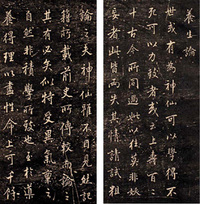 養生論
世或有謂神仙可以學得不
死可以力致者或云上壽百二
十古今所同過此以往莫非妖
妄者此皆兩失其情請試粗
論之夫神仙雖不目見然記
籍所載前史所傳較而論之
其有必矣似特受異氣稟之
自然非積學所能致也至於導
養得理以盡性命上可千餘